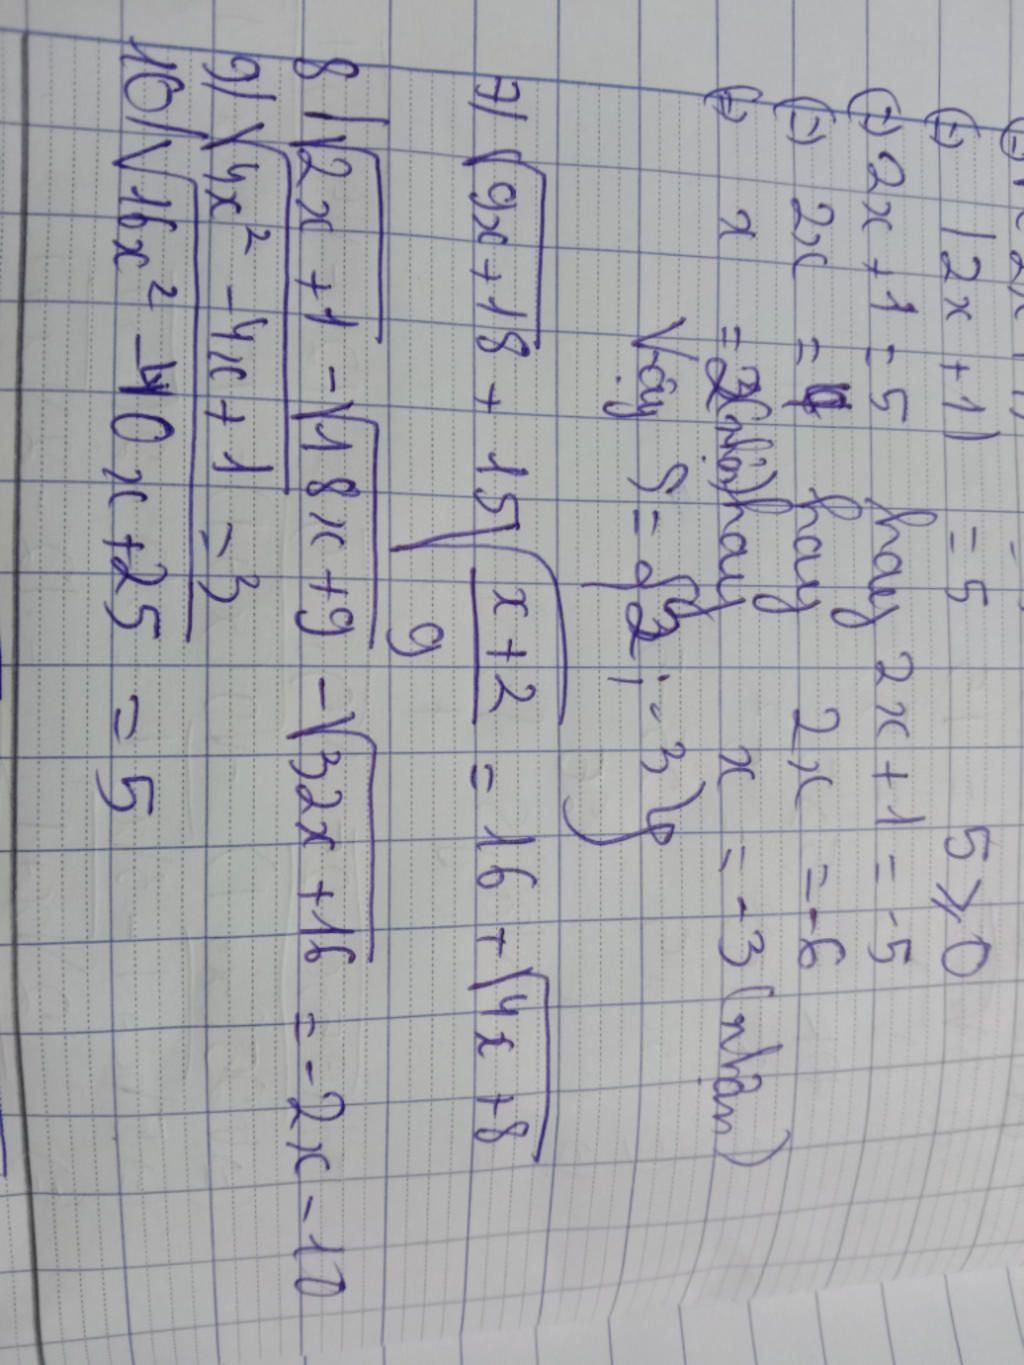 ⇔ |2x + 1| = 5    5 ⩾ 0
⇔ 2x + 1 = 5 hay 2x + 1 = -5
⇔ 2x = 4 hay 2x = -6
⇔ x = 2 (nhận) hay x = -3 (nhận)
Vậy S = {2; -3}
7/ √(9x+18) + 15√((x+2)/9) = 16 + √(4x+8)
8/ √(2x+1) - √(18x+9) - √(32x+16) = -2x - 10
9/ √(4x² - 4x + 1) = 3
10/ √(16x² - 40x + 25) = 5